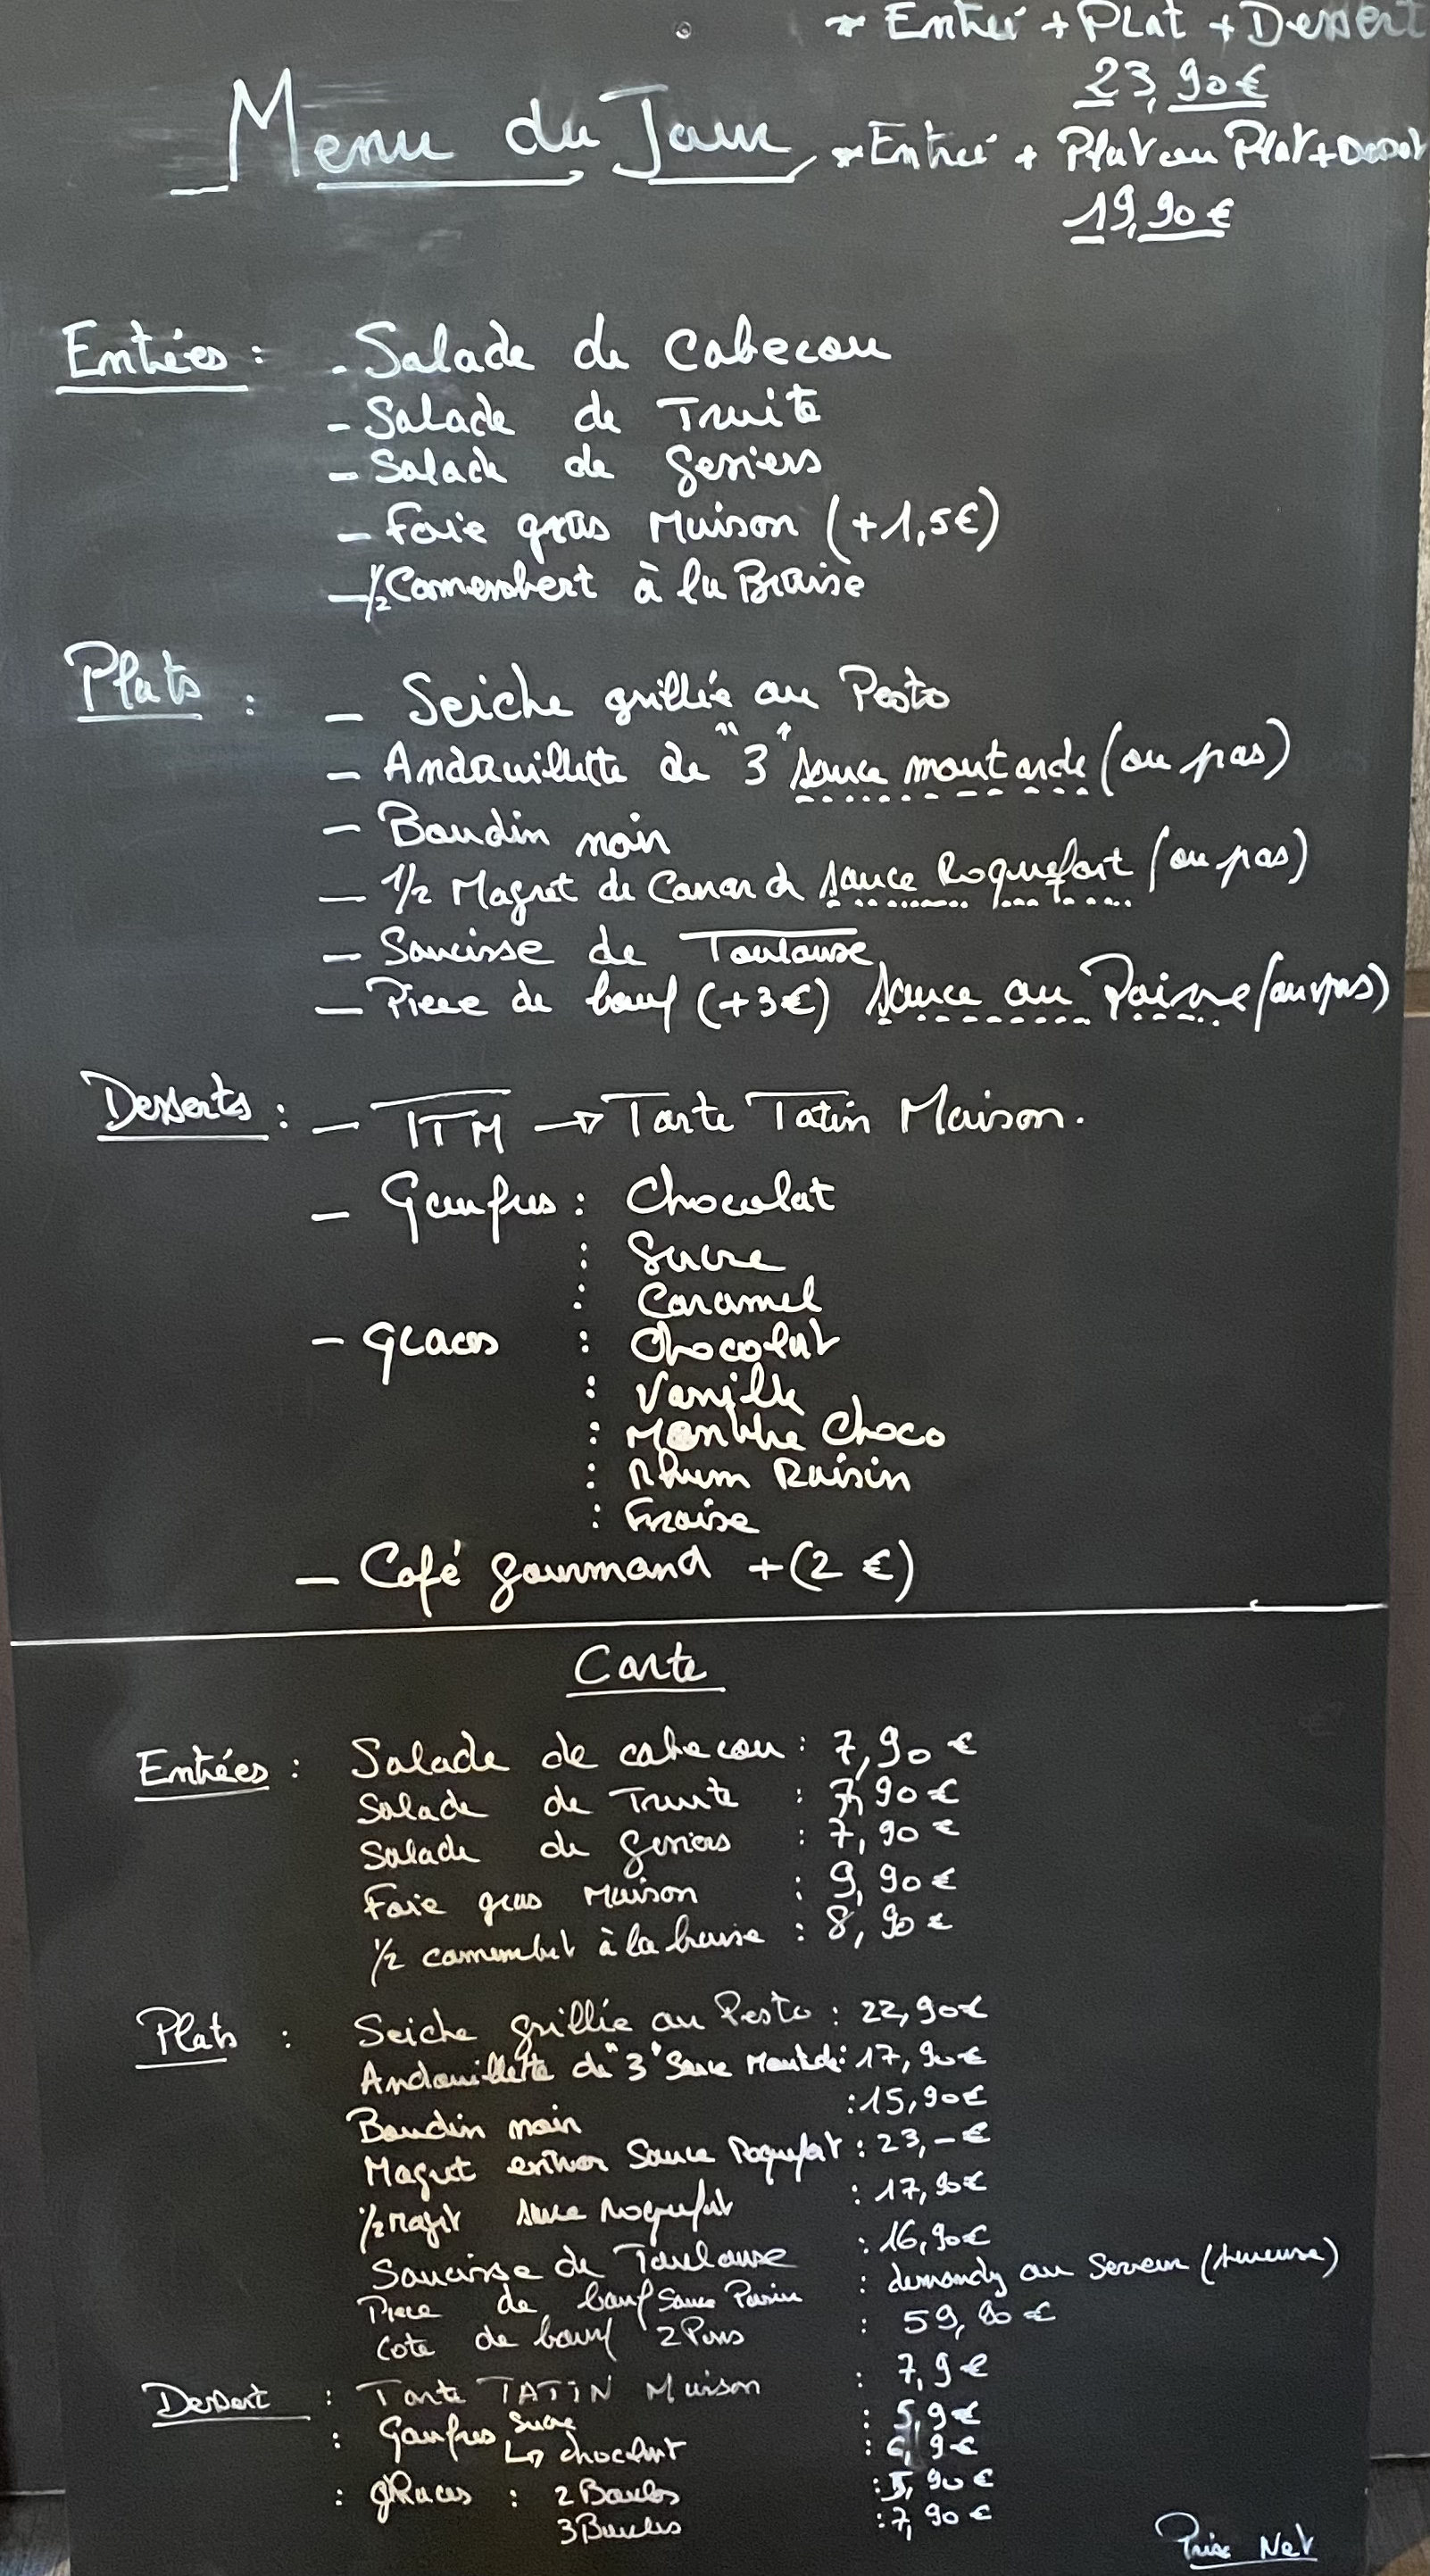 * Entrée + Plat + Dessert
23,90€
Menu du Jour
* Entrée + Plat ou Plat + Dessert
19,90€
Entrées : - Salade de Cabecou
- Salade de Truite
- Salade de Gesiers
- Foie gras Maison (+1,5€)
- 1/2 Camembert à la Braise
Plats : - Seiche grillée au Pesto
- Andouillette de "3" sauce moutarde (ou pas)
- Boudin noir
- 1/2 Magret de Canard sauce Roquefort (ou pas)
- Saucisse de Toulouse
- Piece de bœuf (+3€) sauce au Poivre (ou pas)
Desserts : - TTM → Tarte Tatin Maison.
- Gaufres : Chocolat
: Sucre
: Caramel
- Glaces : Chocolat
: Vanille
: Menthe Choco
: Rhum Raisin
: Fraise
- Café gourmand + (2 €)
Carte
Entrées : Salade de cabecou : 7,90 €
Salade de Truite : 7,90 €
Salade de Gesiers : 7,90 €
Foie gras Maison : 9,90 €
1/2 camembert à la braise : 8,90 €
Plats : Seiche grillée au Pesto : 22,90€
Andouillette de "3" Sauce Moutarde : 17,90€
Boudin noir : 15,90€
Magret entier Sauce Roquefort : 23,-€
1/2 Magret sauce Roquefort : 17,90€
Saucisse de Toulouse : 16,90€
Piece de bœuf Sauce Poivre : demandez au Serveur (serveuse)
Cote de bœuf 2 Pers : 59,90 €
Dessert : Tarte TATIN Maison : 7,9€
: Gaufres Sucre : 5,9€
↳ chocolat : 6,9€
: glaces : 2 Boules : 5,90 €
3 Boules : 7,90 €
Prix Net